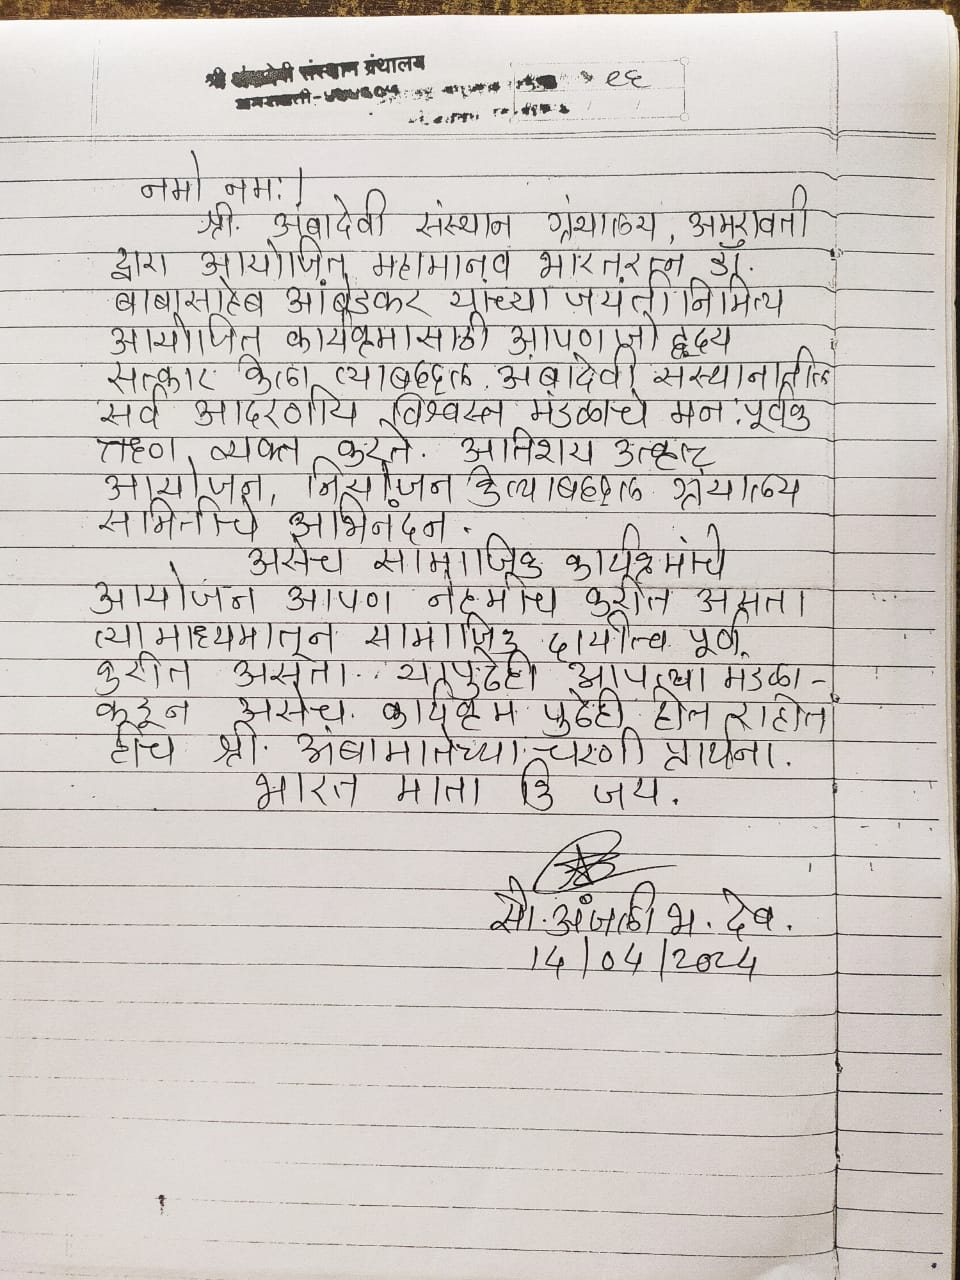 श्री अंबादेवी संस्थान ग्रंथालय
अमरावती-४४४६०१
१६
नमो नमः।
श्री. अंबादेवी संस्थान ग्रंथालय, अमरावती
द्वारा आयोजित महामानव भारतरत्न डॉ.
बाबासाहेब आंबेडकर यांच्या जयंती निमित्य
आयोजित कार्यक्रमासाठी आपण जो हृदय
सत्कार केला त्याबद्दल अंबादेवी संस्थानातील
सर्व आदरणीय विश्वस्त मंडळाचे मनःपूर्वक
व्यक्त करते. अतिशय उत्कृष्ट
आयोजन, नियोजन केल्याबद्दल ग्रंथालय
समितीचे अभिनंदन.
असेच सामाजिक कार्यक्रमांचे
आयोजन आपण नेहमीच करीत असता
त्या माध्यमातून सामाजिक दायीत्व पूर्ण
करीत असता. यापुढेही आपल्या मंडळा-
कडून असेच कार्यक्रम पुढेही होत राहोत
हीच श्री. अंबामातेच्या चरणी प्रार्थना.
भारत माता कि जय.
सौ. अंजली भ. देव.
14/04/2024